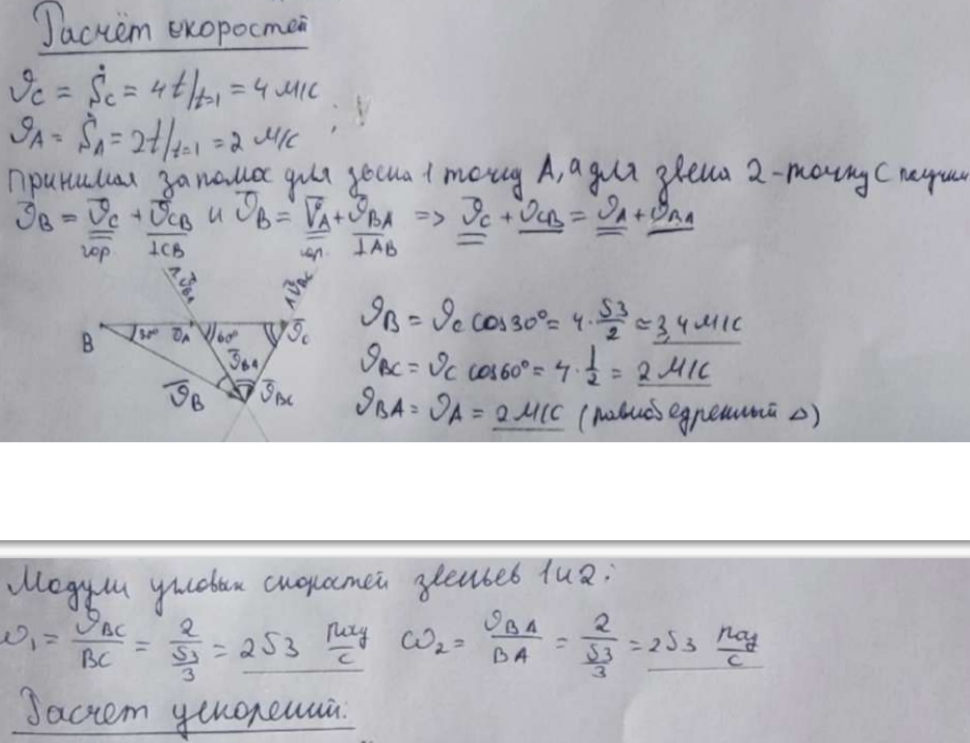 Расчёт скоростей
𝜗C = ṠC = 4t/t=1 = 4 м/с
𝜗A = ṠA = 2t/t=1 = 2 м/с
Принимая за полюс для звена 1 точку A, а для звена 2 - точку C получим
𝜗̄B = 𝜗̄C + 𝜗̄CB и 𝜗̄B = V̄A + 𝜗̄BA => 𝜗̄C + 𝜗̄CB = 𝜗̄A + 𝜗̄BA
гор. ⊥CB ⊥AB
𝜗̄BA 𝜗̄BC
B 30° 𝜗̄A 60° 𝜗̄C
𝜗̄BA
𝜗̄B 𝜗̄BC
𝜗B = 𝜗C cos30° = 4 · √3/2 ≈ 3,4 м/с
𝜗BC = 𝜗C cos60° = 4 · 1/2 = 2 м/с
𝜗BA = 𝜗A = 2 м/с (равнобедренный Δ)
Модули угловых скоростей звеньев 1 и 2:
ω1 = 𝜗BC/BC = 2/(√3/3) = 2√3 рад/с ω2 = 𝜗BA/BA = 2/(√3/3) = 2√3 рад/с
Расчет ускорений: